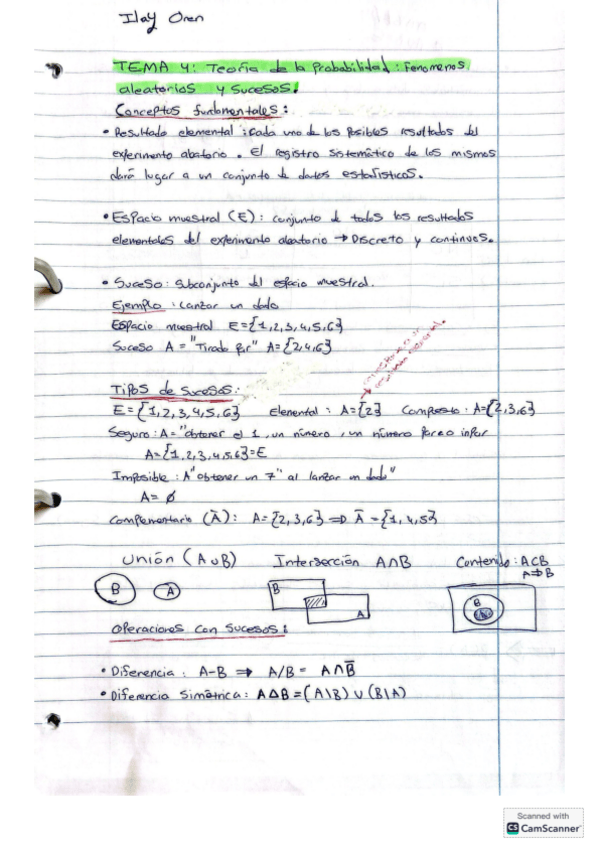 Ilay Oren
TEMA 4: Teoría de la Probabilidad: Fenomenos
aleatorios y sucesos.
Conceptos fundamentales:
• Resultado elemental: Cada uno de los posibles resultados del
experimento aleatorio. El registro sistemático de los mismos
dará lugar a un conjunto de datos estadísticos.
• Espacio muestral (E): conjunto de todos los resultados
elementales del experimento aleatorio → Discreto y continuos.
• Suceso: subconjunto del espacio muestral.
Ejemplo: Lanzar un dado
Espacio muestral E={1,2,3,4,5,6}
Suceso A = "Tirada par" A={2,4,6}
Tipos de sucesos:
E={1,2,3,4,5,6} Elemental: A={2} Compuesto: A={2,3,6}
Seguro: A="obtener el 1, un número, un número par o impar
A={1,2,3,4,5,6}=E
Imposible: A"obtener un 7" al lanzar un dado"
A= ∅
Complementario (Ā): A={2,3,6} ⇒ Ā={1,4,5}
Unión (A∪B) Intersección A∩B Contenido: A⊂B
A⇒B
B A B A B
Operaciones con sucesos:
• Diferencia: A-B ⇒ A/B = A∩B̄
• Diferencia Simétrica: A∆B=(A\B) ∪ (B\A)
Scanned with
CS CamScanner